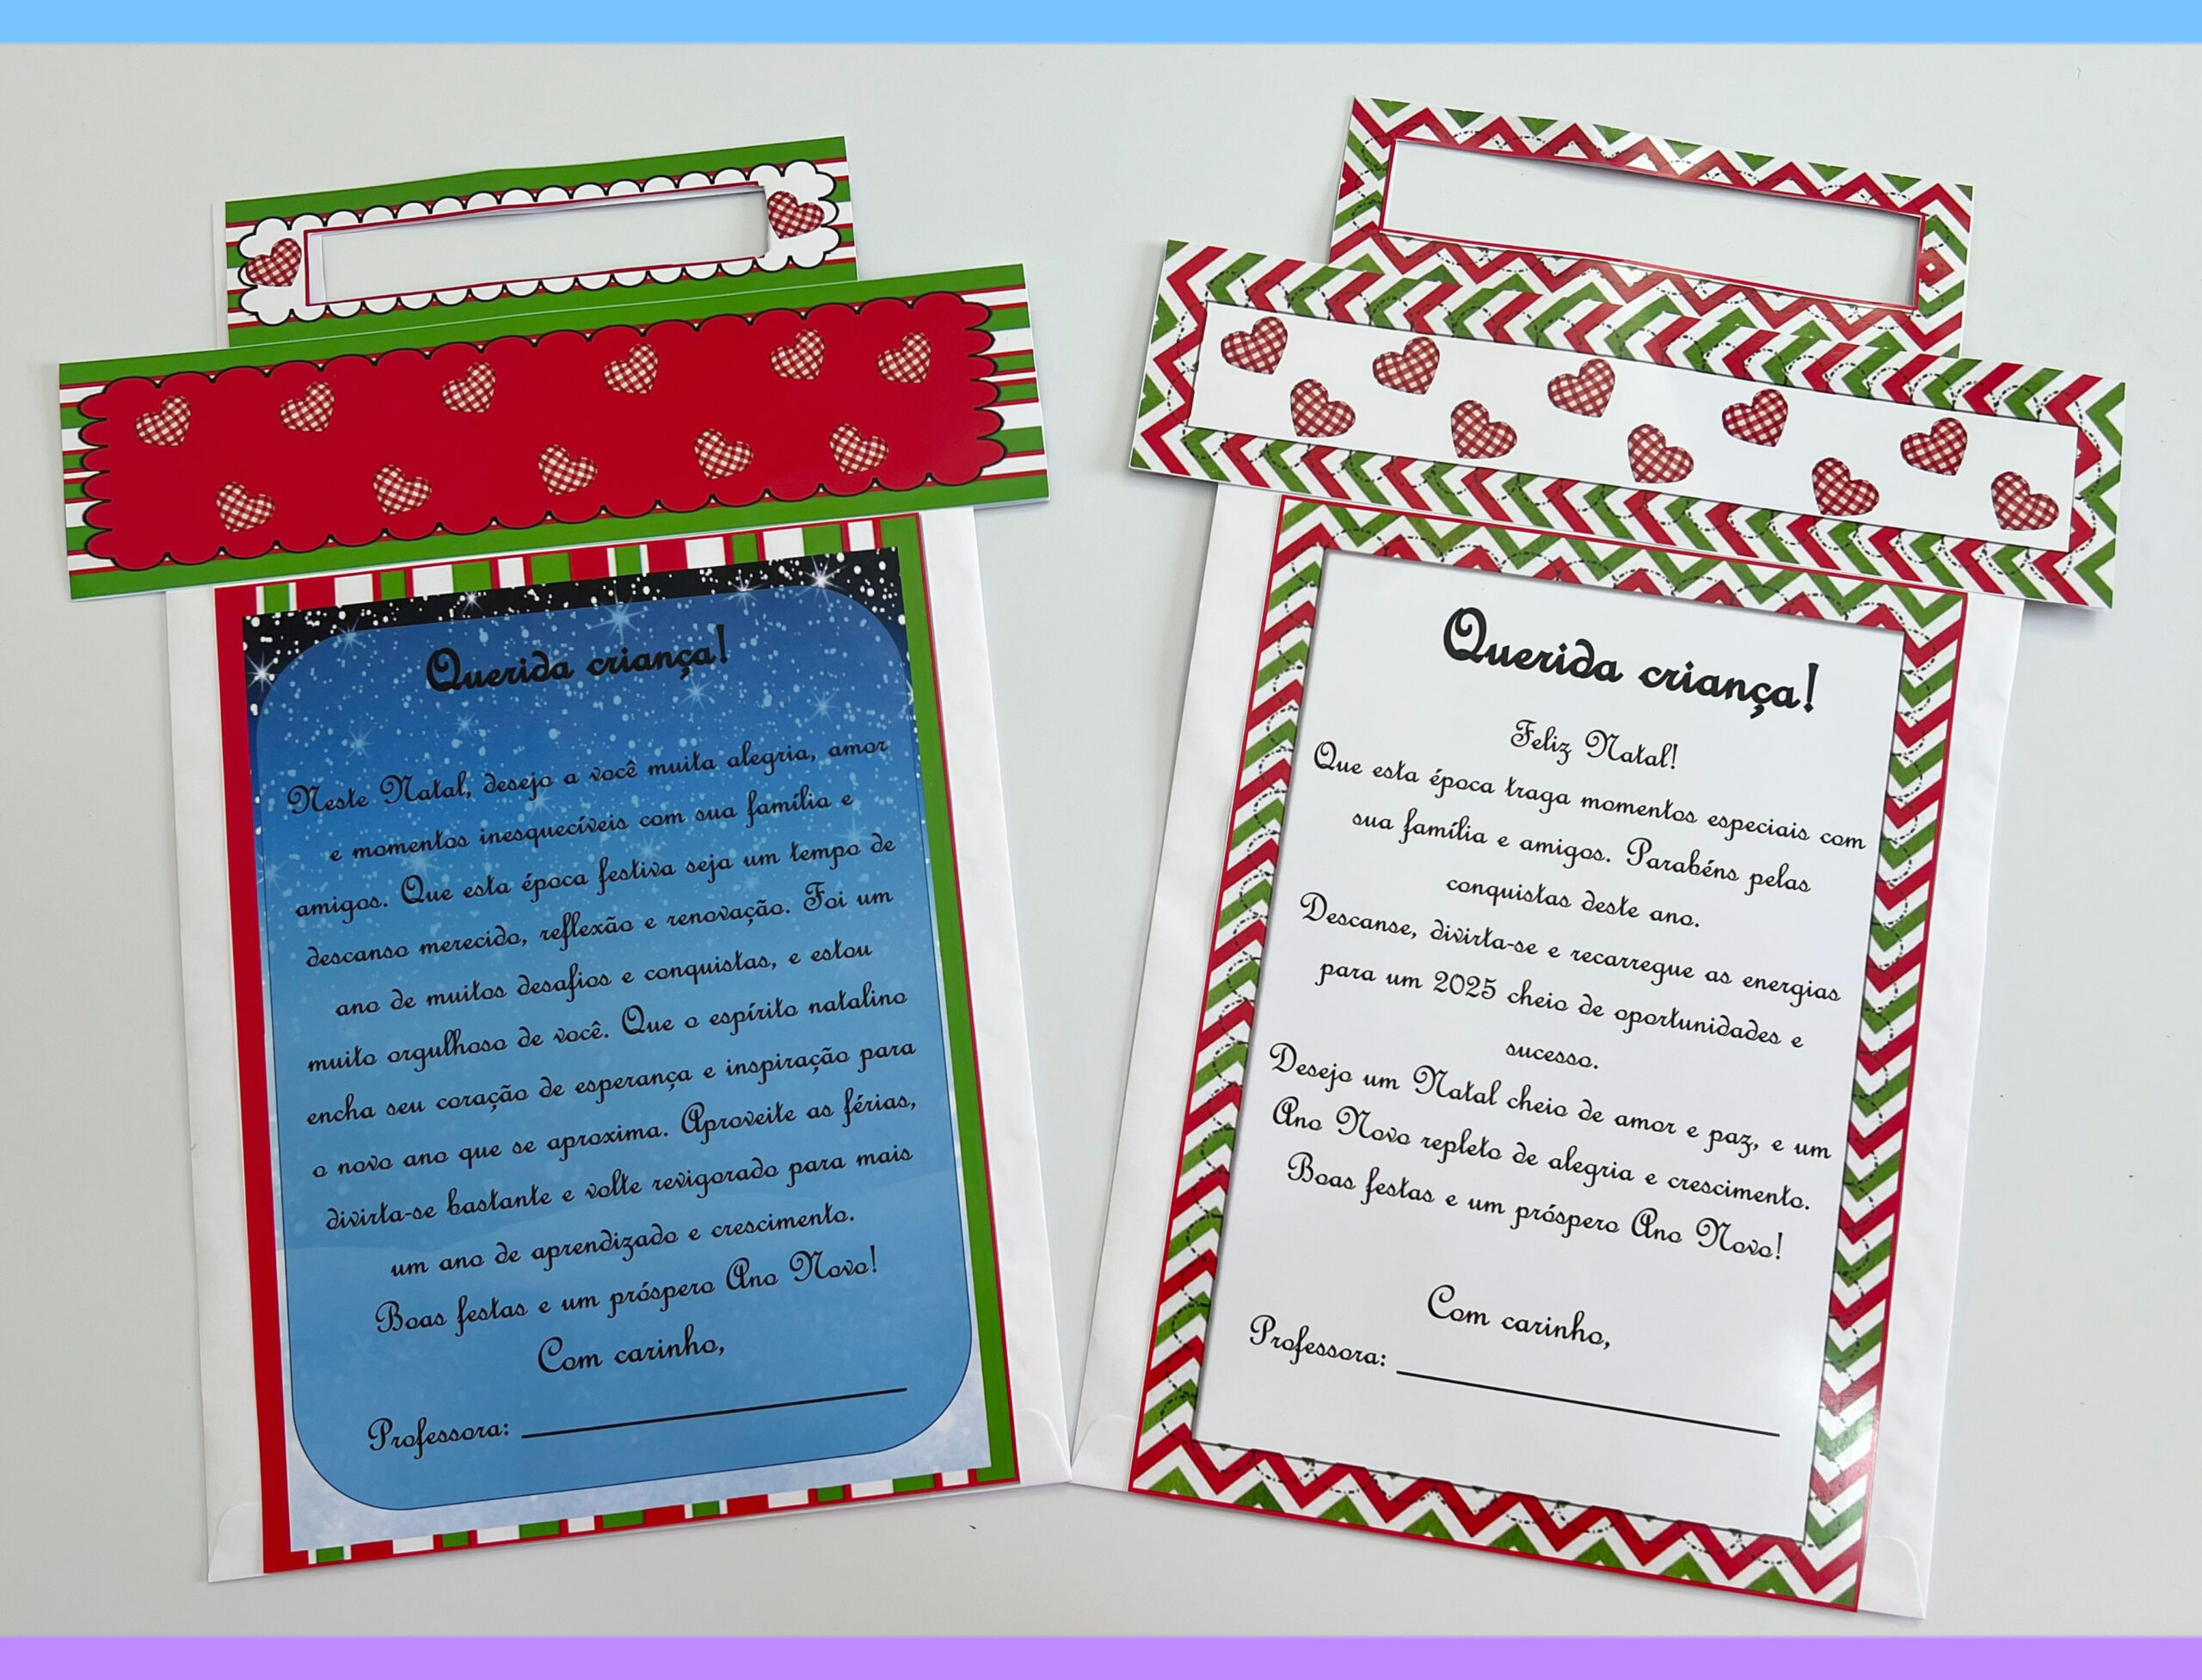 Querida criança!
Neste Natal, desejo a você muita alegria, amor
e momentos inesquecíveis com sua família e
amigos. Que esta época festiva seja um tempo de
descanso merecido, reflexão e renovação. Foi um
ano de muitos desafios e conquistas, e estou
muito orgulhoso de você. Que o espírito natalino
encha seu coração de esperança e inspiração para
o novo ano que se aproxima. Aproveite as férias,
divirta-se bastante e volte revigorado para mais
um ano de aprendizado e crescimento.
Boas festas e um próspero Ano Novo!
Com carinho,
Professora:
Querida criança!
Feliz Natal!
Que esta época traga momentos especiais com
sua família e amigos. Parabéns pelas
conquistas deste ano.
Descanse, divirta-se e recarregue as energias
para um 2025 cheio de oportunidades e
sucesso.
Desejo um Natal cheio de amor e paz, e um
Ano Novo repleto de alegria e crescimento.
Boas festas e um próspero Ano Novo!
Com carinho,
Professora: